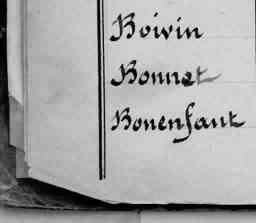 Boivin
Bonnet
Bonenfant